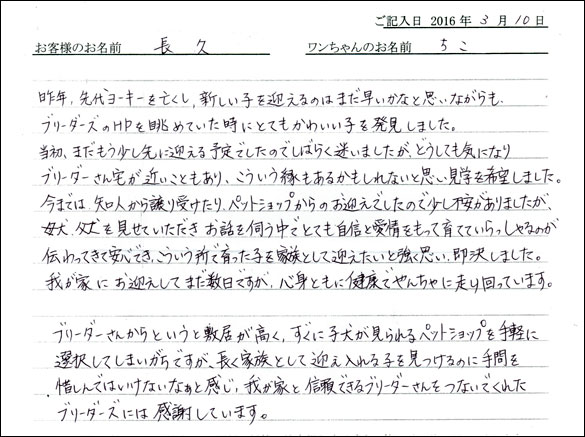 ご記入日 2016 年 3 月 10 日
お客様のお名前 長久 ワンちゃんのお名前 ちこ
昨年、先代ヨーキーを亡くし、新しい子を迎えるのはまだ早いかなと思いながらも、
ブリーダーズのHPを眺めていた時にとてもかわいい子を発見しました。
当初、まだもう少し先に迎える予定でしたのでしばらく迷いましたが、どうしても気になり
ブリーダーさん宅が近いこともあり、こういう縁もあるかもしれないと思い見学を希望しました。
今までは、知人から譲り受けたり、ペットショップからのお迎えでしたので少し不安がありましたが、
母犬、父犬を見せていただき お話を伺う中でとても自信と愛情をもって育てていらっしゃるのが
伝わってきて安心でき、こういう所で育った子を家族として迎えたいと強く思い、即決しました。
我が家にお迎えしてまだ数日ですが、心身ともに健康でやんちゃに走り回っています。
ブリーダーさんからというと敷居が高く、すぐに子犬が見られるペットショップを手軽に
選択してしまいがちですが、長く家族として迎え入れる子を見つけるのに手間を
惜しんではいけないなぁと感じ、我が家と信頼できるブリーダーさんをつないでくれた
ブリーダーズには感謝しています。